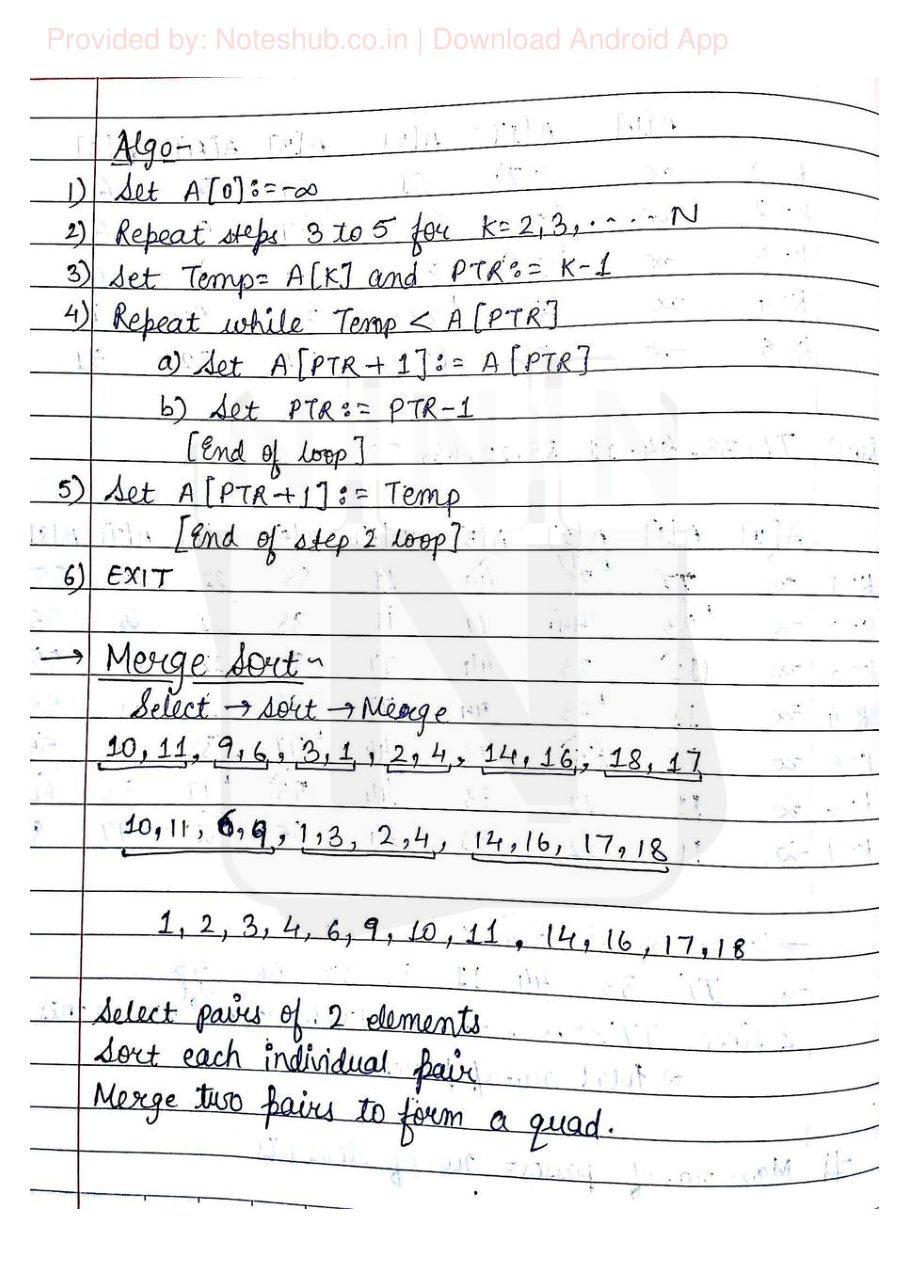 Provided by: Noteshub.co.in | Download Android App
Algo-
1) Set A[0]:=-∞
2) Repeat steps 3 to 5 for K=2,3,.... N
3) Set Temp= A[K] and PTR:= K-1
4) Repeat while Temp < A[PTR]
a) Set A[PTR+1]:= A[PTR]
b) Set PTR:= PTR-1
[End of loop]
5) Set A[PTR+1]:= Temp
[End of step 2 loop]
6) EXIT
→ Merge Sort-
Select → Sort → Merge
10, 11, 9, 6, 3, 1, 2, 4, 14, 16, 18, 17
10, 11, 6, 9, 1, 3, 2, 4, 14, 16, 17, 18
1, 2, 3, 4, 6, 9, 10, 11, 14, 16, 17, 18
Select pairs of 2 elements
Sort each individual pair
Merge two pairs to form a quad.